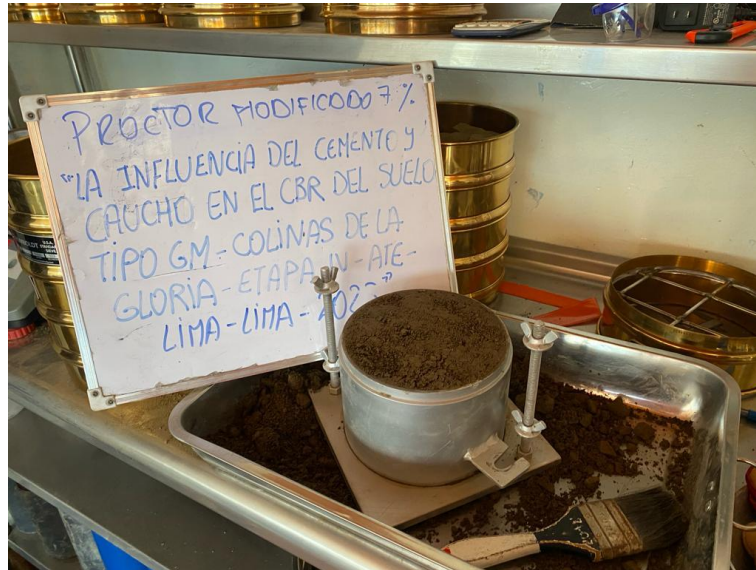 PROCTOR MODIFICADO 7%
"LA INFLUENCIA DEL CEMENTO Y
CAUCHO EN EL CBR DEL SUELO
TIPO GM - COLINAS DE LA
GLORIA - ETAPA IV - ATE -
LIMA - LIMA -